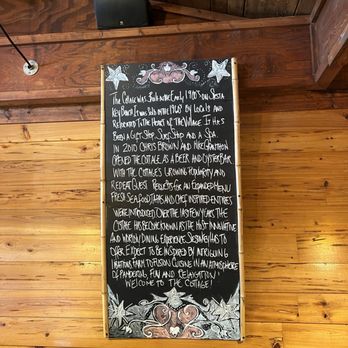 The Cottage was Built in the Early 1940's on Siesta
Key Beach. It was Sold in the 1960's by Locals and
Relocated to the Heart of the Village. It has
Been a Gift Shop, Surf Shop and a Spa.
In 2010 Chris Brown and Mike Granthon
Opened the Cottage as a Beer and Oyster Bar
With the Cottage's Growing Popularity and
Repeat Guest Requests for an Expanded Menu
Fresh Seafood, Tapas and Chef Inspired Entrees
were introduced. Over the last few years the
Cottage has become known as the most innovative
and worldly dining experience Siesta Key has to
offer. Expect to be inspired by intriguing
Farm to Fusion Cuisine in an atmosphere
of Pampering, Fun and Relaxation!
Welcome to the Cottage!